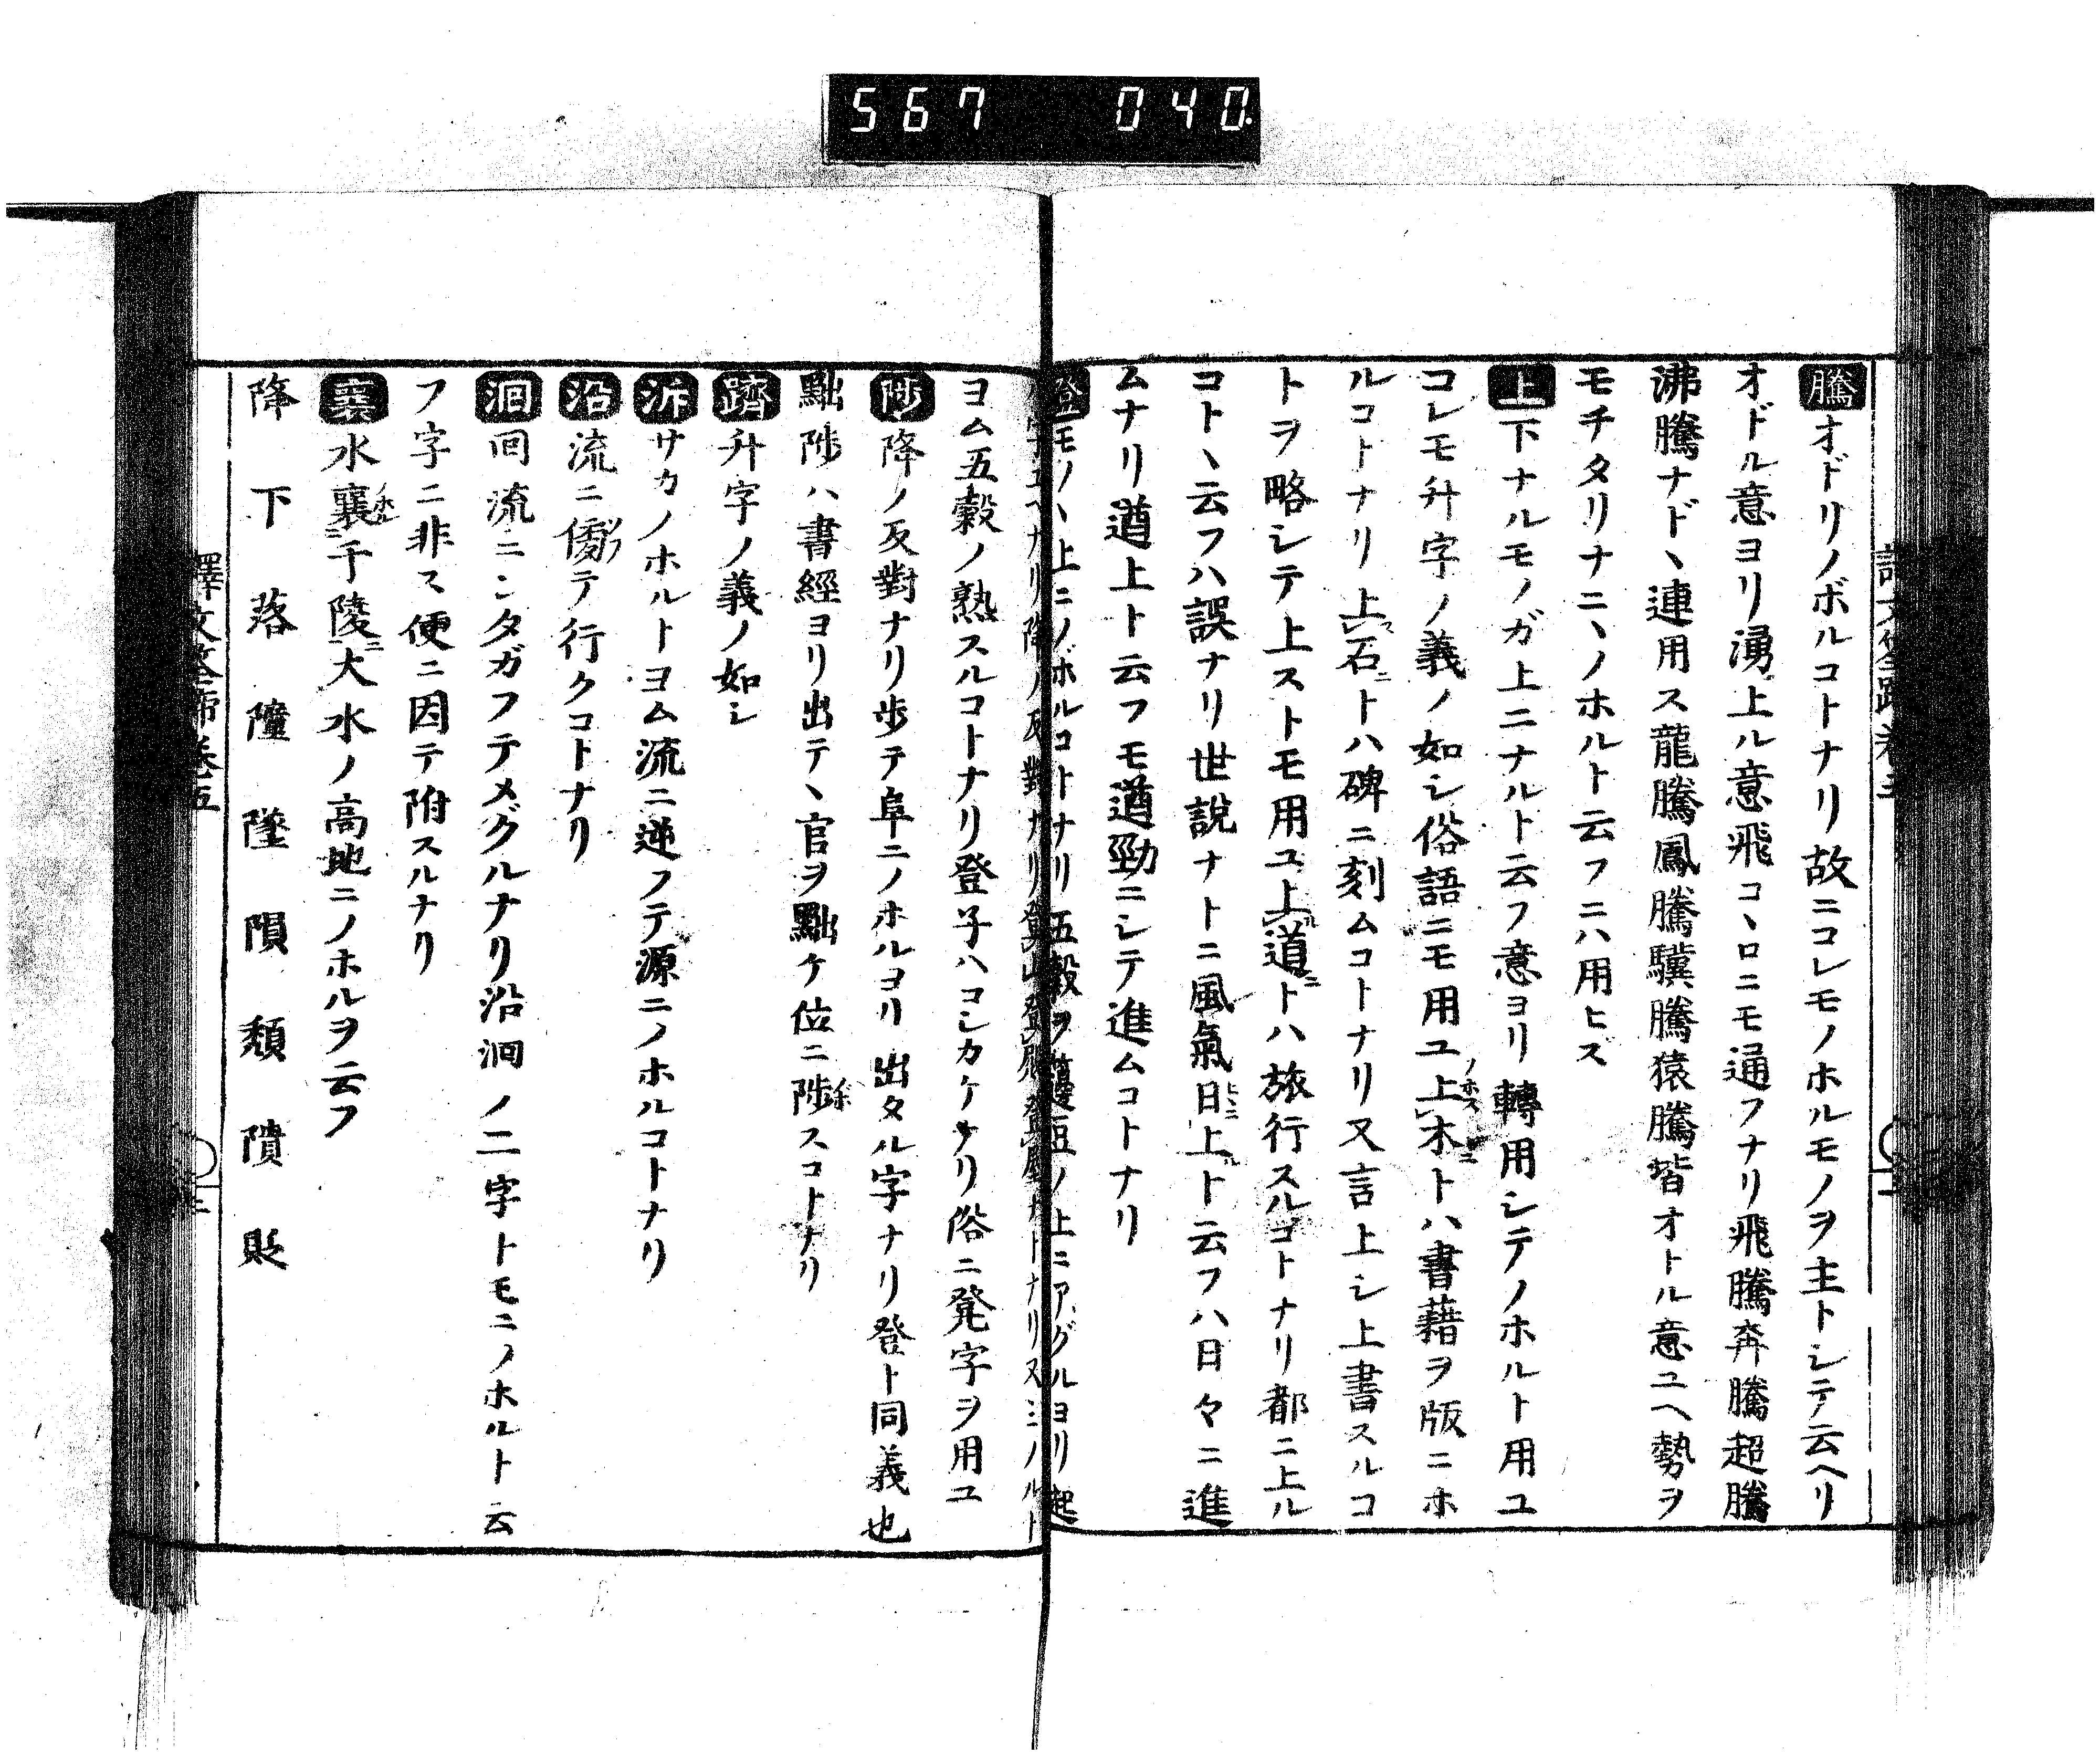 567 040
騰オドリノボルコトナリ故ニコレモノホルモノヲ主トシテ云ヘリ
オドル意ヨリ湧上ル意飛コヽロニモ通フナリ飛騰奔騰超騰
沸騰ナドヽ連用ス龍騰鳳騰驥騰猿騰皆オトル意ユヘ勢ヲ
モチタリナニヽノホルト云フニハ用ヒス
上下ナルモノガ上ニナルト云フ意ヨリ轉用シテノホルト用ユ
コレモ升字ノ義ノ如シ俗語ニモ用ユ上木トハ書藉ヲ版ニホ
ルコトナリ上石トハ碑ニ刻ムコトナリ又言上シ上書スルコ
トヲ略シテ上ストモ用ユ上道トハ旅行スルコトナリ都ニ上ル
コトヽ云フハ誤ナリ世說ナトニ風氣日上ト云フハ日々ニ進
ムナリ遒上ト云フモ遒勁ニシテ進ムコトナリ
登モノヽ上ニノボルコトナリ五穀ヲ豆ノ上ニアグルヨリ起
ナリ降ノ反對ナリ登山ナトナリ又ミノルト
ヨム五穀ノ熟スルコトナリ登字ハコシカケナリ俗ニ凳字ヲ用ユ
陟降ノ反對ナリ歩テ阜ニノホルヨリ出タル字ナリ登ト同義也
黜陟ハ書經ヨリ出テヽ官ヲ黜ケ位ニ陟スコトナリ
躋升字ノ義ノ如シ
泝サカノホルトヨム流ニ逆フテ源ニノホルコトナリ
沿流ニ傍テ行クコトナリ
洄回流ニシタガフテメグルナリ沿洄ノ二字トモニノホルト云
フ字ニ非ス便ニ因テ附スルナリ
襄水襄于陵大水ノ高地ニノホルヲ云フ
降下落墮墜隕頽隤貶
譯文筌蹄卷五